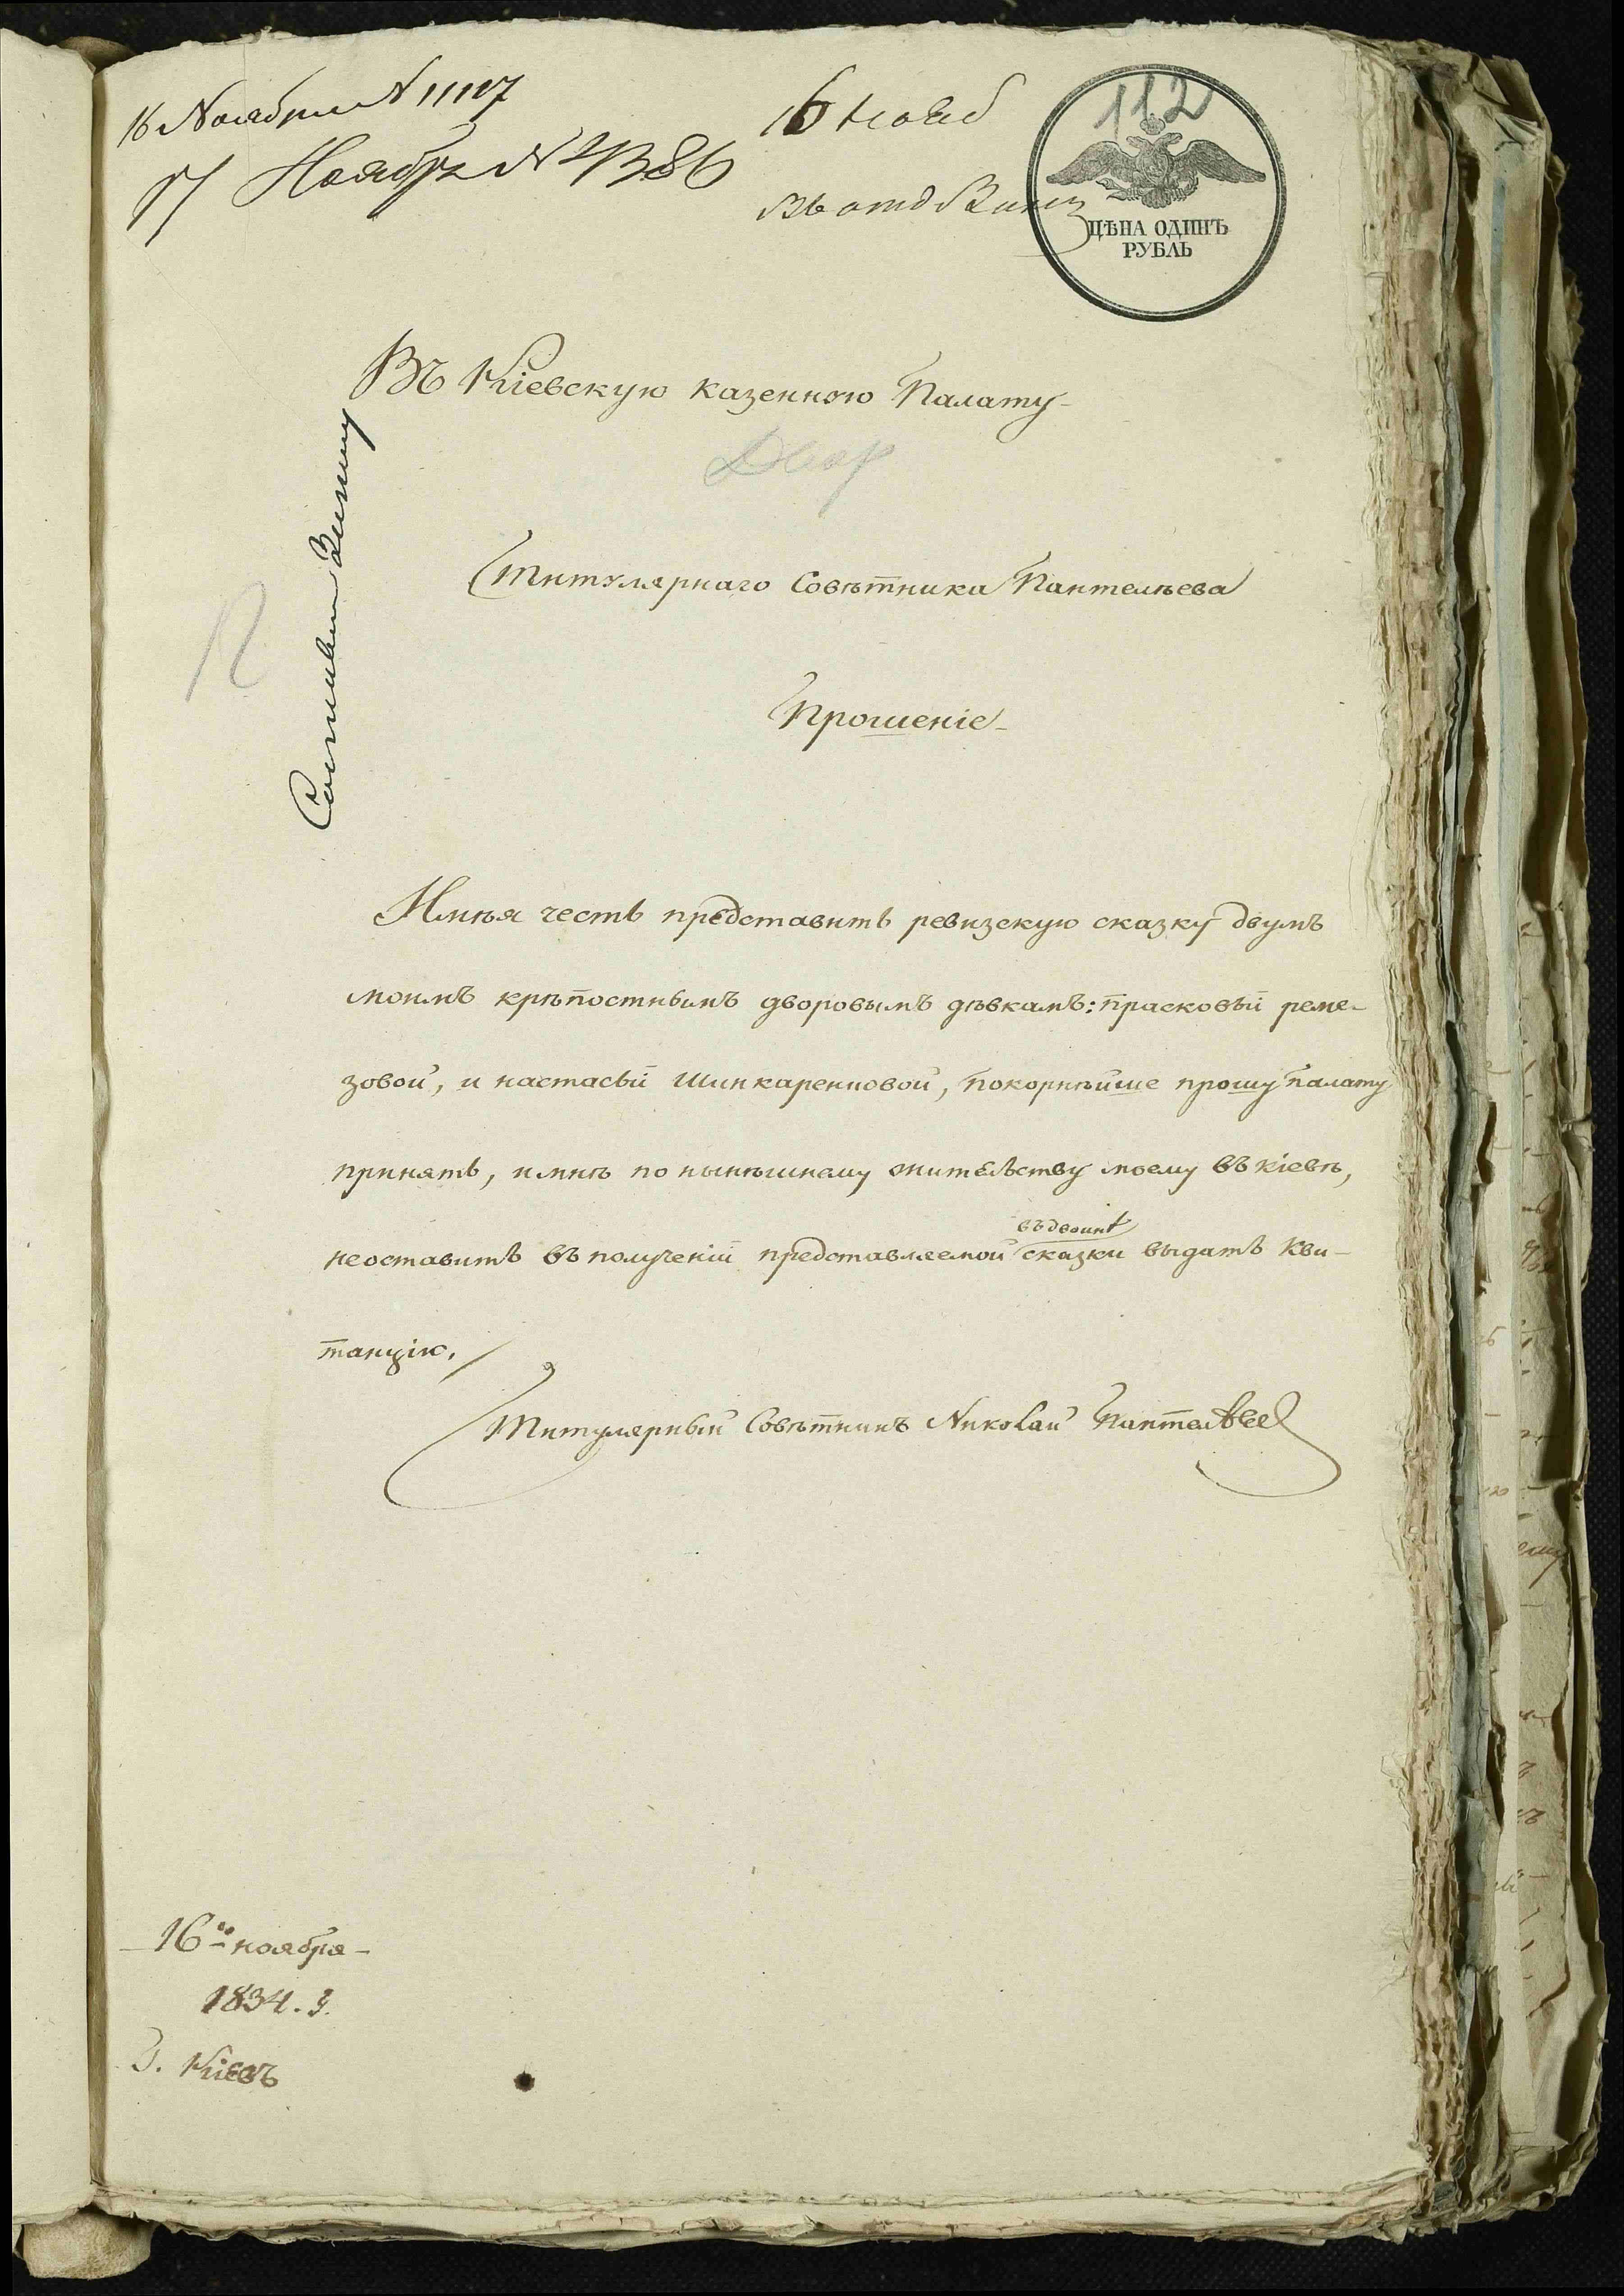 16 Ноября № 11117
17 Ноября № 4386
16 нояб
въ отд
112
ЦѢНА ОДИНЪ
РУБЛЬ
Въ Кіевскую казенную Палату
Двор
Титулярнаго Совѣтника Пантелѣева
Прошеніе
Имѣя честь представить ревизскую сказку двумъ
моимъ крѣпостнымъ дворовымъ дѣвкамъ: прасковьи реме-
зовой, и настасьи Шинкаренковой, покорнѣйше прошу палату
принять, и мнѣ по нынѣшнему жительству моему въ кіевѣ,
въ двоинѣ
неоставить въ полученіи представляемой сказки выдать Кви-
танцію.
Титулярный Совѣтникъ Николай Пантелѣев
16го ноября
1834. г.
г. Кіевъ